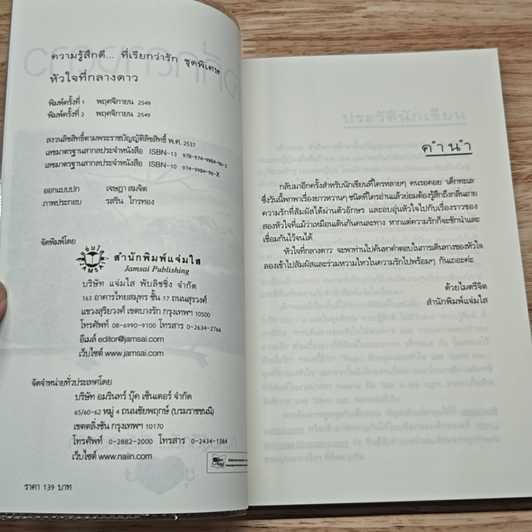 ความรู้สึกดี... ที่เรียกว่ารัก ชุดพิเศษ
หัวใจที่กลางดาว
พิมพ์ครั้งที่ 1 พฤศจิกายน 2549
พิมพ์ครั้งที่ 2 พฤศจิกายน 2549
สงวนลิขสิทธิ์ตามพระราชบัญญัติลิขสิทธิ์ พ.ศ. 2537
เลขมาตรฐานสากลประจำหนังสือ ISBN-13 978-974-9984-96-3
เลขมาตรฐานสากลประจำหนังสือ ISBN-10 974-9984-96-X
ออกแบบปก เจษฎา สมจิต
ภาพประกอบ รสริน ไกรทอง
จัดพิมพ์โดย
สำนักพิมพ์แจ่มใส
Jamsai Publishing
บริษัท แจ่มใส พับลิชชิ่ง จำกัด
163 อาคารไทยสมุทร ชั้น 17 ถนนสุรวงศ์
แขวงสุริยวงศ์ เขตบางรัก กรุงเทพฯ 10500
โทรศัพท์ 08-6990-9100 โทรสาร 0-2634-2766
อีเมล์ editor@jamsai.com
เว็บไซต์ www.jamsai.com
จัดจำหน่ายทั่วประเทศโดย
บริษัท อมรินทร์ บุ๊ค เซ็นเตอร์ จำกัด
65/60-62 หมู่ 4 ถนนชัยพฤกษ์ (บรมราชชนนี)
เขตตลิ่งชัน กรุงเทพฯ 10170
โทรศัพท์ 0-2882-2000 โทรสาร 0-2434-1384
เว็บไซต์ www.naiin.com
ราคา 139 บาท
ประวัตินักเขียน
คำนำ
กลับมาอีกครั้งสำหรับนักเขียนที่ใครหลายๆ คนรอคอย 'เด็กทะเล'
ซึ่งวันนี้พกพาเรื่องยาวหวานๆ ชนิดที่ใครอ่านแล้วย่อมต้องรู้สึกถึงกลิ่นอาย
ความรักที่สัมผัสได้ผ่านตัวอักษร และอบอุ่นหัวใจไปกับเรื่องราวของ
สองหัวใจที่แม้ว่าเหมือนเดินกันคนละทาง หากแต่ความรักก็จะชักนำและ
เชื่อมกันไว้จนได้
'หัวใจที่กลางดาว' จะพาท่านไปค้นหาคำตอบในการเดินทางของหัวใจ
ลองเข้าไปสัมผัสและร่วมหวามไหวในความรักไปพร้อมๆ กันเถอะค่ะ
ด้วยไมตรีจิต
สำนักพิมพ์แจ่มใส